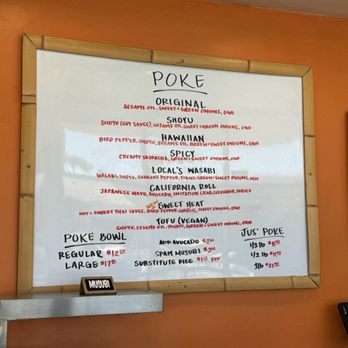 POKE
ORIGINAL
SESAME OIL, SWEET + GREEN ONIONS, OGO
SHOYU
SHOYU (SOY SAUCE), SESAME OIL, SWEET + GREEN ONIONS, OGO
HAWAIIAN
BIRD PEPPER, SHOYU, SESAME OIL, GREEN + SWEET ONIONS, OGO
SPICY
CREAMY SRIRACHA, GREEN + SWEET ONIONS, OGO
LOCAL'S WASABI
WASABI, SHOYU, SERRANO PEPPER, GREEN + SWEET ONIONS, OGO
CALIFORNIA ROLL
JAPANESE MAYO, AVOCADO, IMITATION CRAB, CUCUMBER
SWEET HEAT
HOT + SWEET THAI SAUCE, BIRD PEPPER, GARLIC, SWEET ONIONS, OGO
TOFU (VEGAN)
SHOYU, SESAME OIL, GREEN + SWEET ONIONS, OGO
POKE BOWL
REGULAR
LARGE
ADD AVOCADO
SPAM MUSUBI
SUBSTITUTE RICE PER
JUS' POKE
1/3 lb
1/2 lb
1 lb
MUSUBI